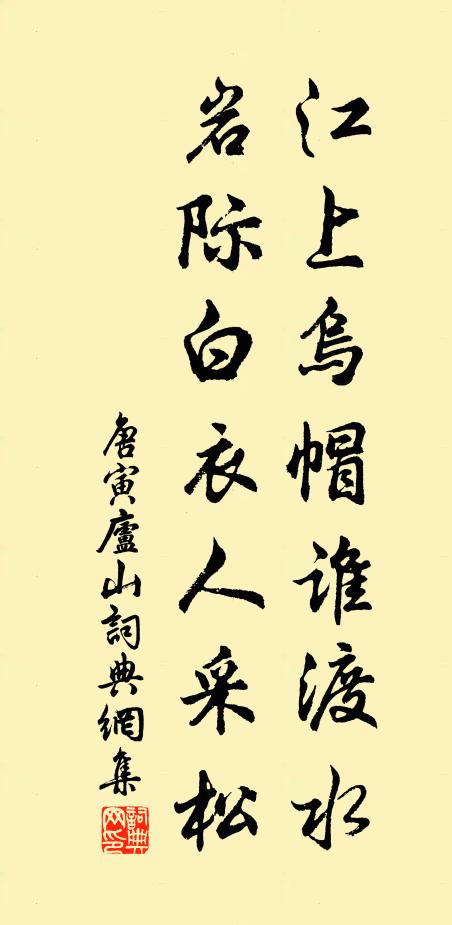 江上烏帽谁渡水
岩际白衣人采松
唐寅廬山詞典網集
詞典网印